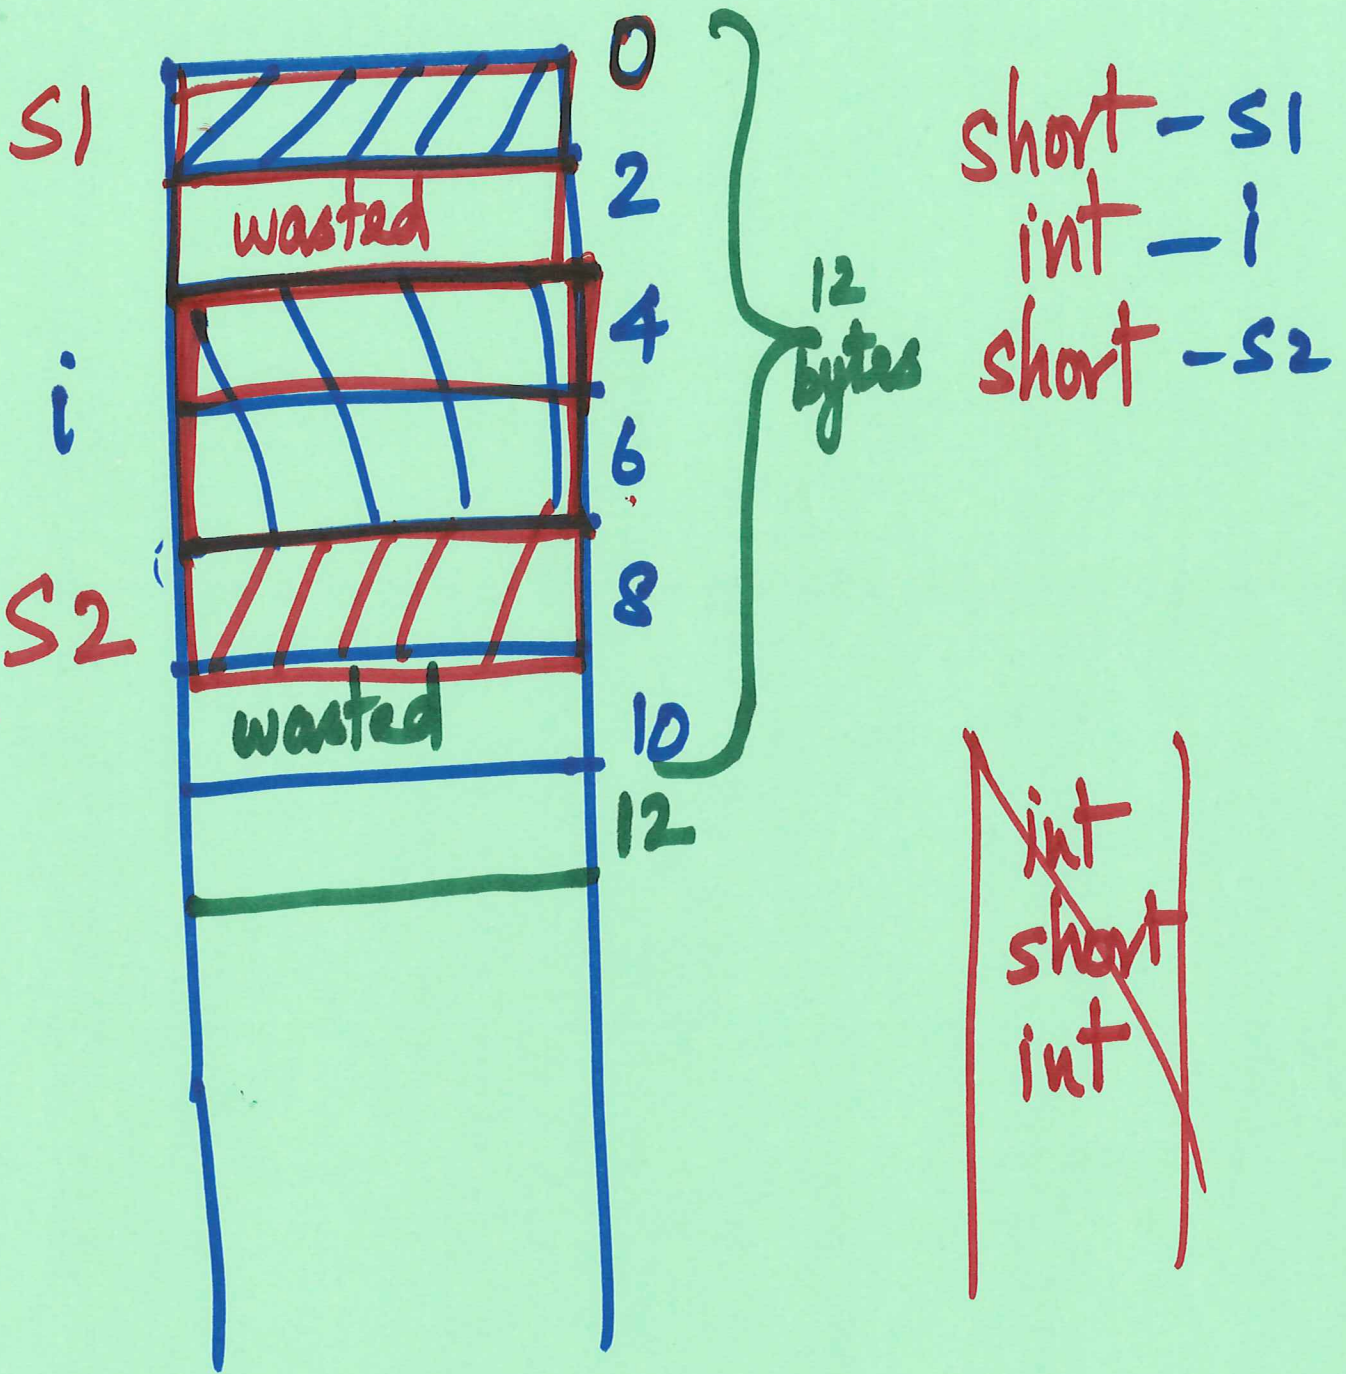 S1
wasted
i
S2
wasted
0
2
4
6
8
10
12
12
bytes
short - S1
int - i
short - S2
int
short
int